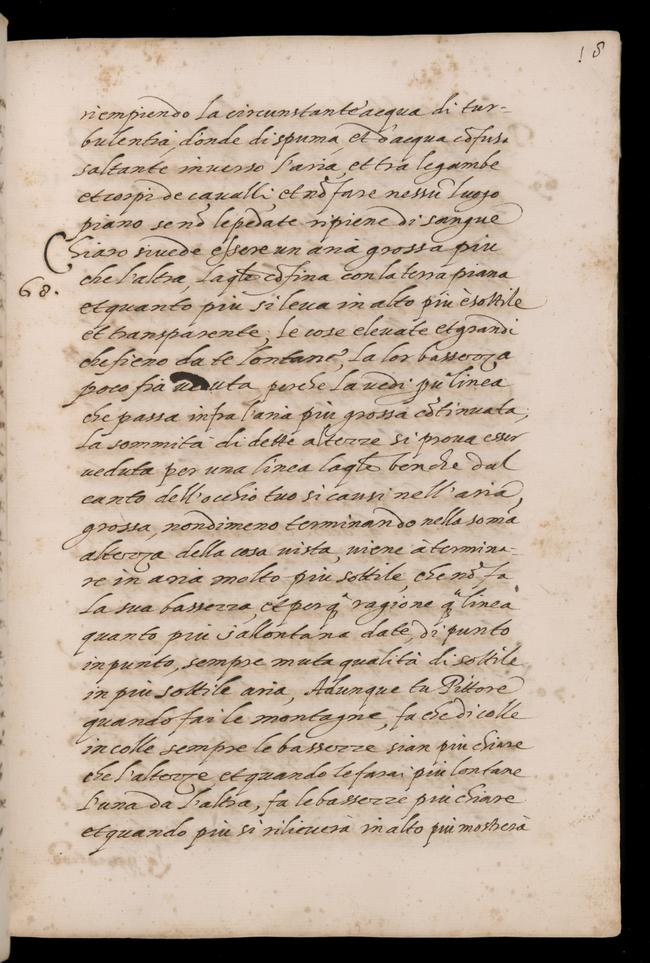 18
riempiendo la circunstante acqua di tur-
bulentia, donde di spuma, et d'acqua cōfusa
saltante inverso l'aria, et tra le gambe
et corpi de cavalli, et nō fare nessū luogo
piano se nō le pedate ripiene di sangue
Chiaro si vede essere un aria grossa piu
68.
che l'altra, la qle cōfina con la terra piana
et quanto piu si leva in alto piu è sottile
et transparente, le cose elevate et grandi
che fieno da te lontane, la lor bassezza
poco fia veduta perche la vedi p linea
che passa infra l'aria piu grossa cōtinuata,
la sommità di dette altezze si prova esser
veduta per una linea la qle benche dal
canto dell'occhio tuo si causi nell'aria
grossa, nondimeno terminando nella soma
altezza della cosa vista, viene à termina-
re in aria molto piu sottile, che nō fa
la sua bassezza, et per qª ragione qª linea
quanto piu s'allontana da te, di punto
in punto, sempre muta qualità di sottile
in piu sottile aria, Adunque tu Pittore
quando fai le montagne, fa che di colle
in colle sempre le bassezze sian piu chiare
che l'altezze, et quando le farai piu lontane
l'una da l'altra, fa le bassezze piu chiare
et quando piu si rilieverà in alto piu mostrerà